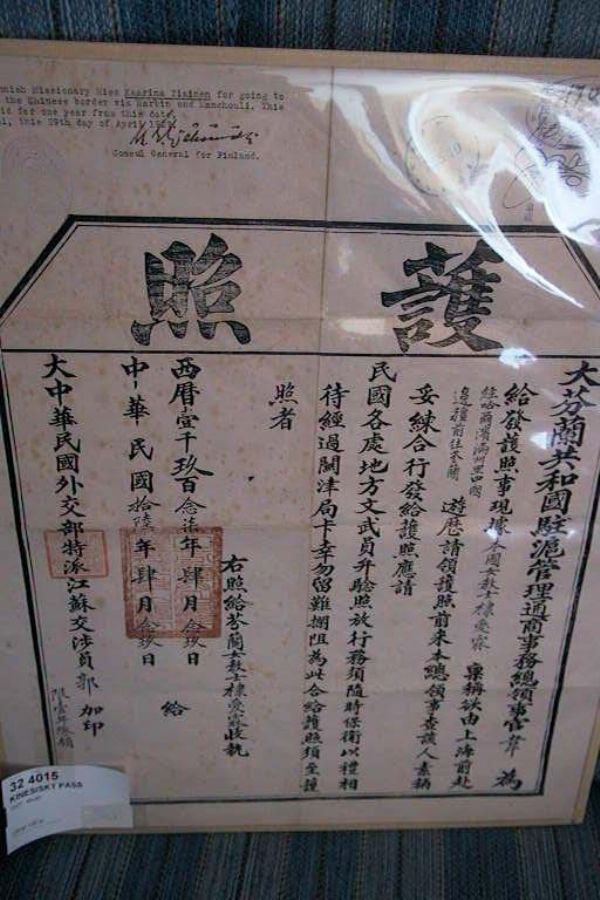 nnish Missionary Miss Kaarina Ylainen for going to
the Chinese border via Harbin and Manchouli. This
id for one year from this date,
this 29th day of April
Consul General for Finland.
護照
大芬蘭共和國駐滬管理通商事務總領事官韋 為
給發護照事現據本國女教士棣愛霖 稟稱欲由上海前赴
經哈爾濱滿洲里四國
邊疆前往本蘭
遊歷請領護照前來本總領事查該人素稱
妥練合行發給護照應請
民國各處地方文武員弁驗照放行務須隨時保衛以禮相
待經過關津局卡幸勿留難攔阻為此合給護照須至護
照者
右照給芬蘭女教士棣愛霖收執
西曆壹千玖百念柒年肆月念玖日
給
中華民國拾陸年肆月念玖日
大中華民國外交部特派江蘇交涉員郭 加印
限壹年繳銷
32 4015
KINESISKT PASS